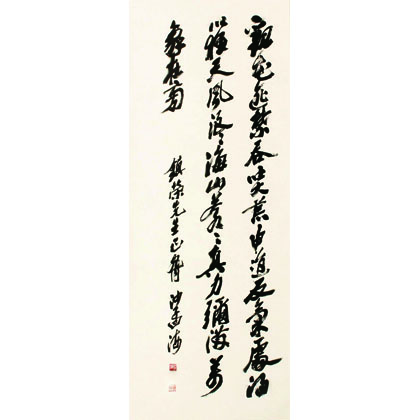 觀花匪禁吞吐大荒由道反氣處得
以狂天風浪〻海山蒼〻真力彌滿萬
象在旁
鎮榮先生正 沙孟海